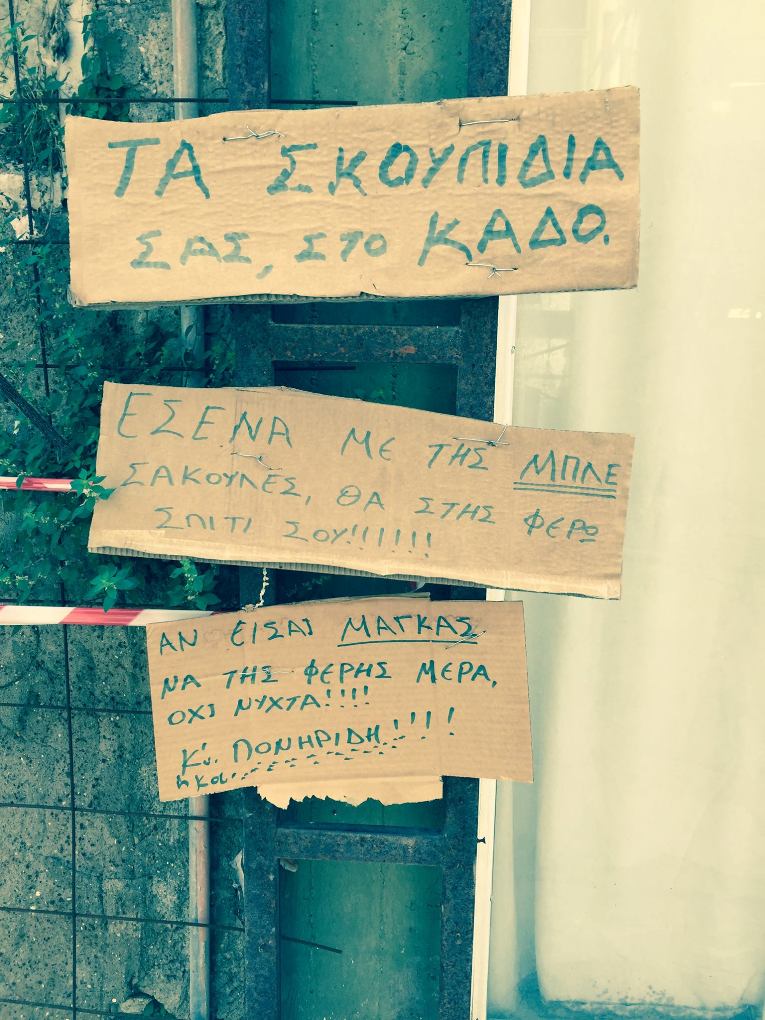 ΤΑ ΣΚΟΥΠΙΔΙΑ
ΣΑΣ, ΣΤΟ ΚΑΔΟ.
ΕΣΕΝΑ ΜΕ ΤΗΣ ΜΠΛΕ
ΣΑΚΟΥΛΕΣ, ΘΑ ΣΤΗΣ ΦΕΡΩ
ΣΠΙΤΙ ΣΟΥ!!!!!!
ΑΝ ΕΙΣΑΙ ΜΑΓΚΑΣ
ΝΑ ΤΗΣ ΦΕΡΗΣ ΜΕΡΑ,
ΟΧΙ ΝΥΧΤΑ!!!!
Κ'. ΠΟΝΗΡΙΔΗ!!!!